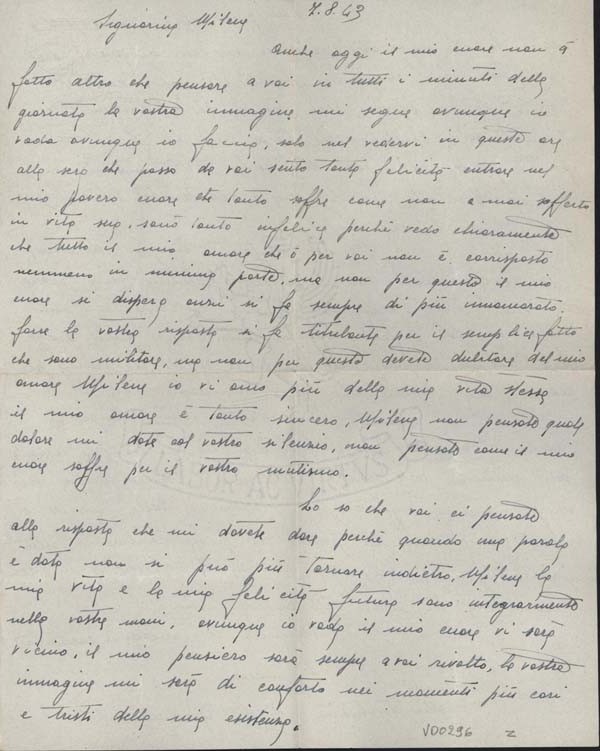 7.8.43
Signorina Milena
Anche oggi il mio cuore non à
fatto altro che pensare a voi in tutti i minuti della
giornata la vostra immagine mi segue ovunque io
vada ovunque io faccia, solo nel vedervi in queste ore
alla sera che passo da voi sento tanta felicità entrare nel
mio povero cuore che tanto soffre come non a mai sofferto
in vita sua, sono tanto infelice perché vedo chiaramente
che tutto il mio amore che ò per voi non è corrisposto
nemmeno in minima parte, ma non per questo il mio
cuore si dispera anzi si fa sempre di più innamorato,
forse la vostra risposta si fa titubante per il semplice fatto
che sono militare, ma non per questo dovete dubitare del mio
amore Milena io vi amo più della mia vita stessa
il mio amore è tanto sincero, Milena non pensate quale
dolore mi date col vostro silenzio, non pensate come il mio
cuore soffre per il vostro mutismo.
Lo so che voi ci pensate
alla risposta che mi dovete dare perché quando una parola
è data non si può più tornare indietro, Milena la
mia vita e la mia felicità futura sono integrarmente
nelle vostre mani, ovunque io vada il mio cuore vi sarà
vicino, il mio pensiero sarà sempre a voi rivolto, la vostra
immagine mi sarà di conforto nei momenti più cari
e tristi della mia esistenza.
V00296 z
LABOR